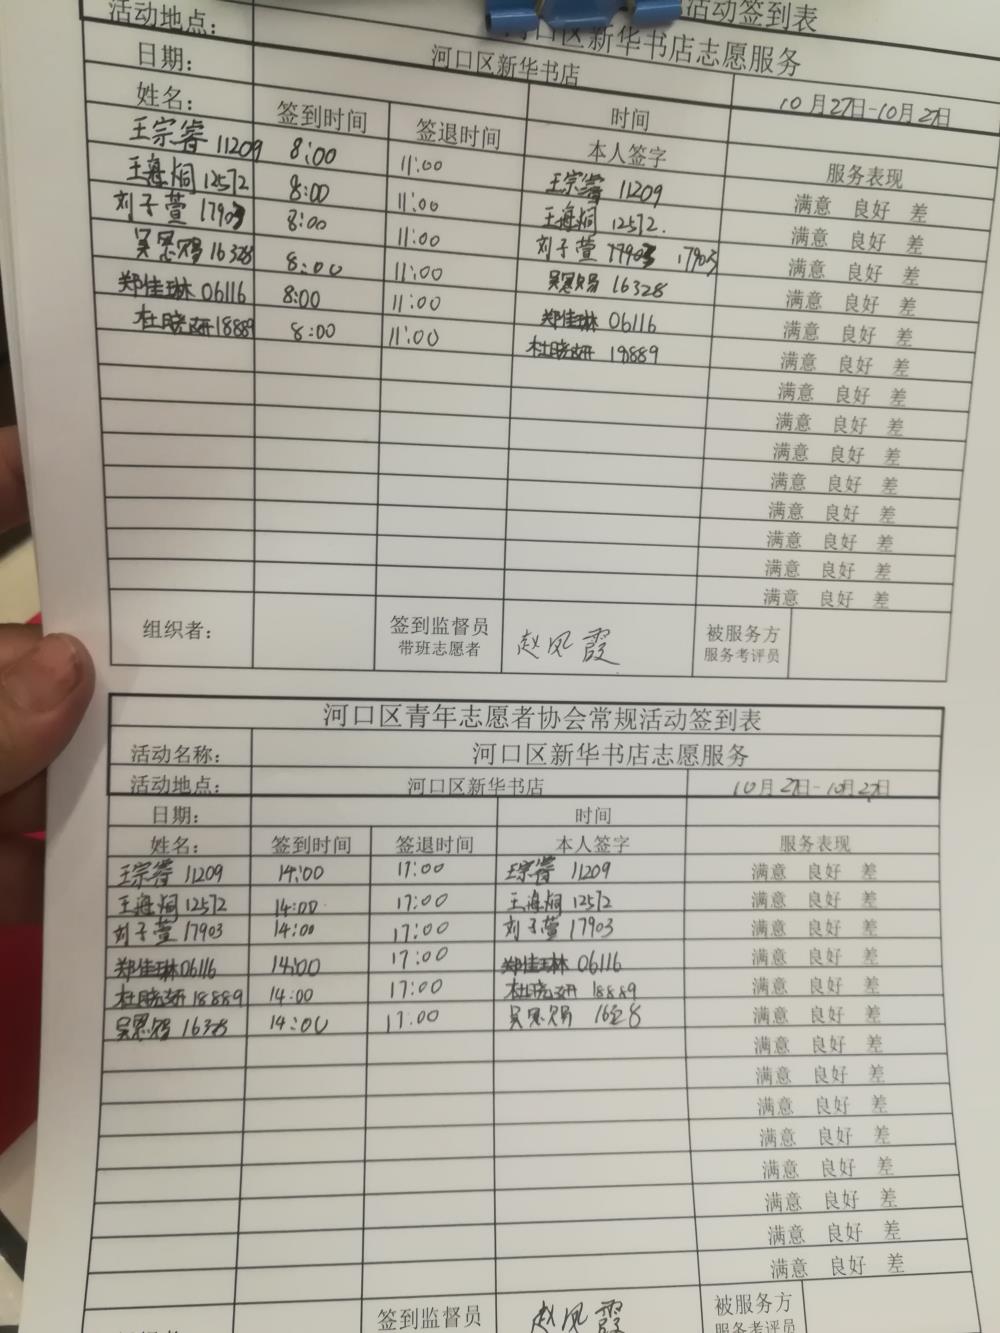 活动签到表
活动地点： 河口区新华书店志愿服务
日期： 河口区新华书店 10月27日-10月27日
姓名： 签到时间 签退时间 时间
王宗睿 11209 8:00 11:00 本人签字 服务表现
王海炯 12572 8:00 11:00 王宗睿 11209 满意 良好 差
刘子萱 17903 8:00 11:00 王海炯 12572. 满意 良好 差
吴恩赐 16328 8:00 11:00 刘子萱 17903 17903 满意 良好 差
郑佳琳 06116 8:00 11:00 吴恩赐 16328 满意 良好 差
杜晓妍 18889 8:00 11:00 郑佳琳 06116 满意 良好 差
杜晓妍 18889 满意 良好 差
满意 良好 差
满意 良好 差
满意 良好 差
满意 良好 差
满意 良好 差
满意 良好 差
满意 良好 差
满意 良好 差
组织者： 签到监督员 赵凤霞 被服务方
带班志愿者 服务考评员
河口区青年志愿者协会常规活动签到表
活动名称： 河口区新华书店志愿服务
活动地点： 河口区新华书店 10月27日-10月27日
日期： 时间
姓名： 签到时间 签退时间 本人签字 服务表现
王宗睿 11209 14:00 17:00 王宗睿 11209 满意 良好 差
王海炯 12572 14:00 17:00 王海炯 12572 满意 良好 差
刘子萱 17903 14:00 17:00 刘子萱 17903 满意 良好 差
郑佳琳 06116 14:00 17:00 郑佳琳 06116 满意 良好 差
杜晓妍 18889 14:00 17:00 杜晓妍 18889 满意 良好 差
吴恩赐 16328 14:00 17:00 吴恩赐 16328 满意 良好 差
满意 良好 差
满意 良好 差
满意 良好 差
满意 良好 差
满意 良好 差
满意 良好 差
满意 良好 差
满意 良好 差
签到监督员 赵凤霞 被服务方
服务考评员